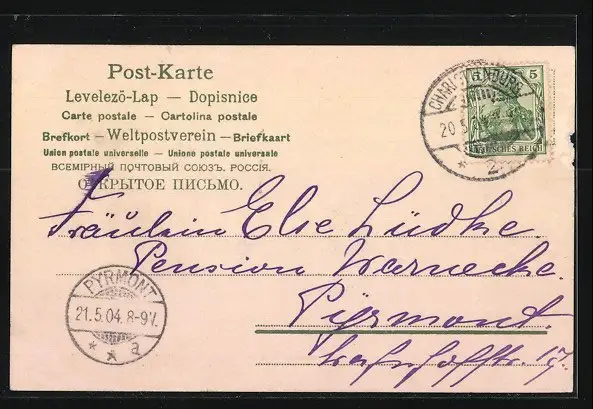 Post-Karte
Levelező-Lap — Dopisnice
Carte postale — Cartolina postale
Brefkort — Weltpostverein — Briefkaart
Union postale universelle — Unione postale universale
ВСЕМІРНЫЙ ПОЧТОВЫЙ СОЮЗЪ. РОССІЯ.
ОТКРЫТОЕ ПИСЬМО.
CHARLOTTENBURG
20.5
2
5
DEUTSCHES REICH
Fräulein Else Lüdke.
Pension Warnecke.
Pyrmont.
Bahnhofstr. 17.
PYRMONT
21.5.04. 8-9V.
* * a